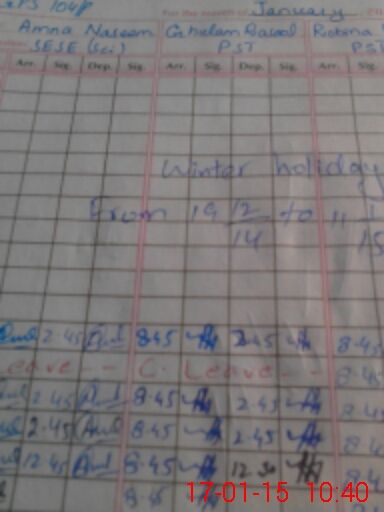 104P For the month of January
Amna Naseem Ghulam Rasool Rubina
SESE (Sci) PST PST
Arr. Sig. Dep. Sig. Arr. Sig. Dep. Sig. Arr.
Winter holiday
From 19 12/14 to 11 1/15
2.45 8.45 2.45 8.45
Leave - - C. Leave - - 8.45
2.45 8.45 2.45 8.45
2.45 8.45 2.45
12.45 8.45 12.30
8.45
17-01-15 10:40